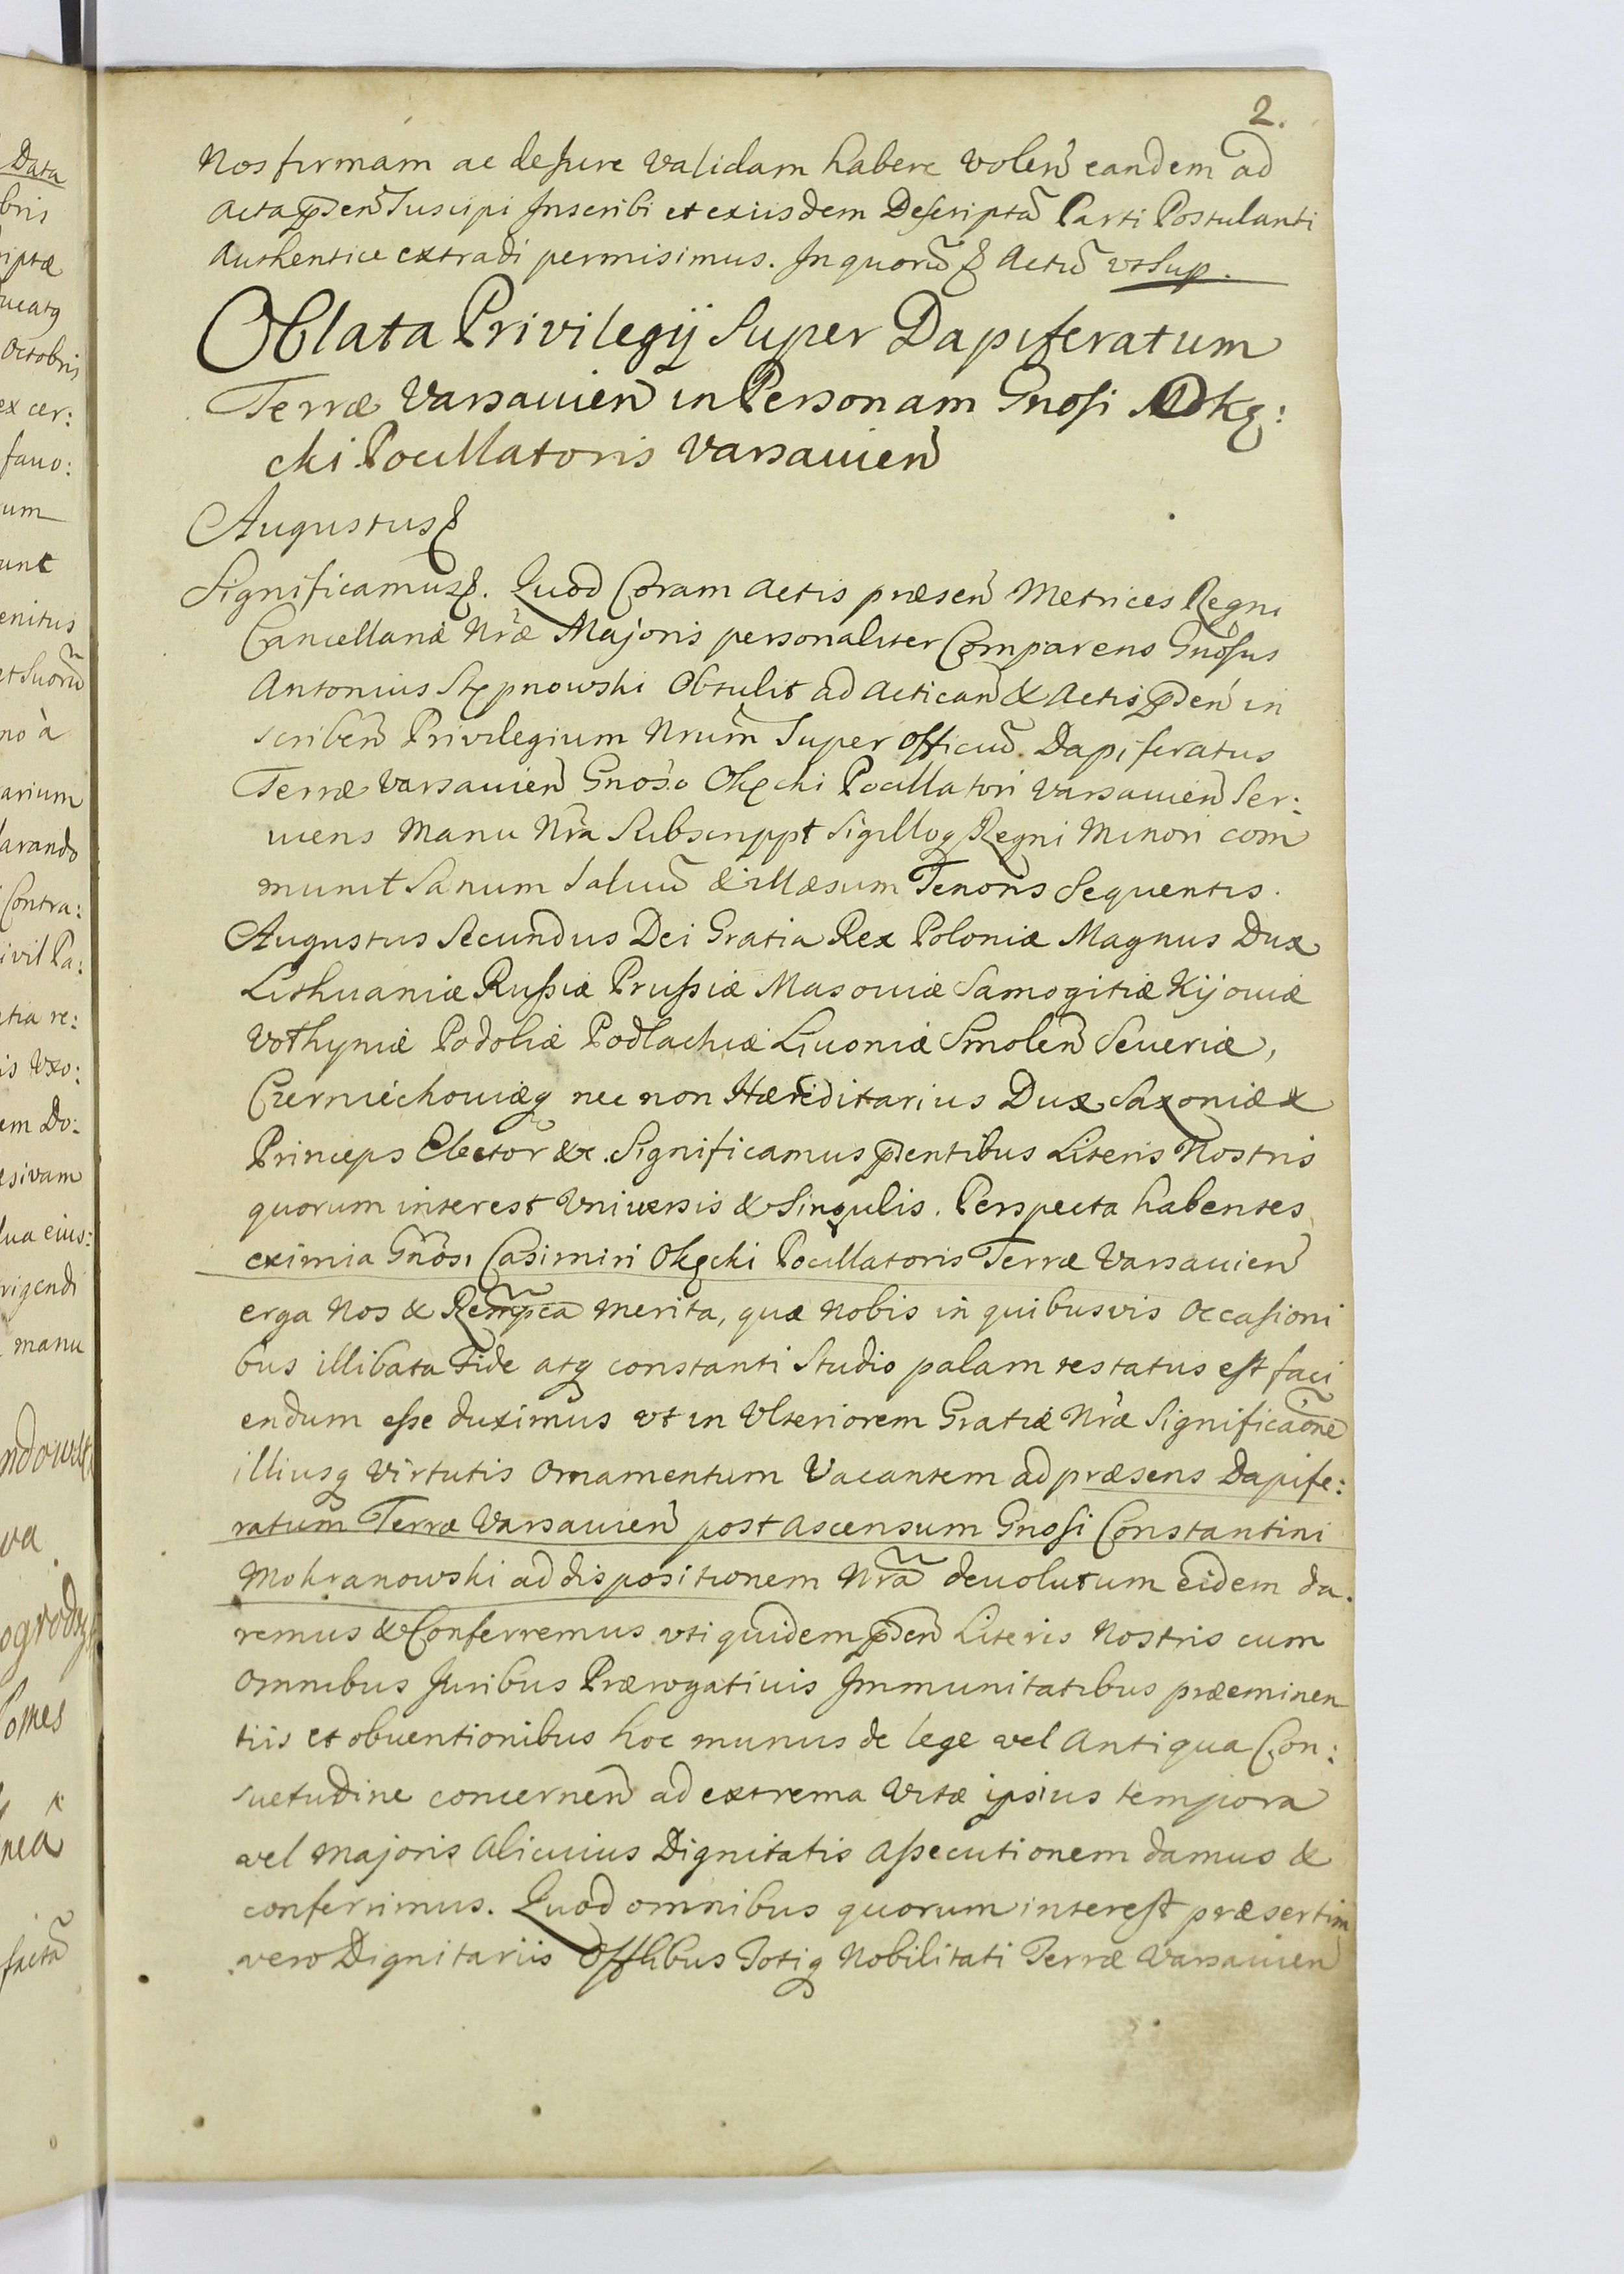 2.
Nos firmam ac de Jure validam habere volen̄ eandem ad
Acta p̄sen̄ Suscipi Inscribi et exiisdem Descriptā Parti Postulanti
Authentice extradi permisimus. In quorū Actū vt Sup.
Oblata Privilegij Super Dapiferatum
Terræ Varsauien̄ in Personam Gnosi Okę:
cki Pocillatoris Varsauien̄
Augustus
Significamus. Quod Coram Actis præsen̄ Metrices Regni
Cancellariæ Nræ Majoris personaliter Comparens Gnosus
Antonius Stępnowski Obtulit ad Actican̄ & Actis p̄sen̄ in
scriben̄ Privilegium Nrum̄ Super officiū Dapiferatus
Terræ Varsauien̄ Gnoso Okęcki Pocillatori Varsauien̄ Ser:
uiens Manu Nra Subscrippt Sigilloq Regni Minori com̄
munit Sanum Saluū & illæsum Tenoris Sequentis.
Augustus Secundus Dei Gratia Rex Poloniæ Magnus Dux
Lithuaniæ Rußiæ Prußiæ Masouiæ Samogitiæ Kijouiæ
Volhyniæ Podoliæ Podlachiæ Liuoniæ Smolen̄ Seueriæ,
Czerniechouiæq nec non Hæreditarius Dux Saxoniæ &
Princeps Elector &c. Significamus p̄sentibus Literis Nostris
quorum interest Vniuersis & Singulis. Perspecta habentes
eximia Gnosi Casimiri Okęcki Pocillatoris Terræ Varsauien̄
erga Nos & Rempcam̄ merita, quæ Nobis in quibusvis Occasioni
bus illibata Fide atq constanti Studio palam testatus est faci
endum esse duximus vt in Vlteriorem Gratiæ Nræ Significaōnē
illiusq Virtutis Ornamentum Vacantem ad præsens Dapife:
ratum Terræ Varsauien̄ post ascensum Gnosi Constantini
Mokranowski ad dispositionem Nrā deuolutum eidem da.
remus & Conferremus vti quidem p̄sen̄ Literis Nostris cum
Omnibus Juribus Prærogatiuis Immunitatibus præeminen
tiis et obuentionibus hoc munus de lege vel Antiqua Con:
suetudine concernen̄ ad extrema Vitæ ipsius tempora
vel Majoris Alicuius Dignitatis Aßecutionem damus &
conferimus. Quod omnibus quorum interest præsertim
vero Dignitariis Offlibus Totiq Nobilitati Terræ Varsauien̄